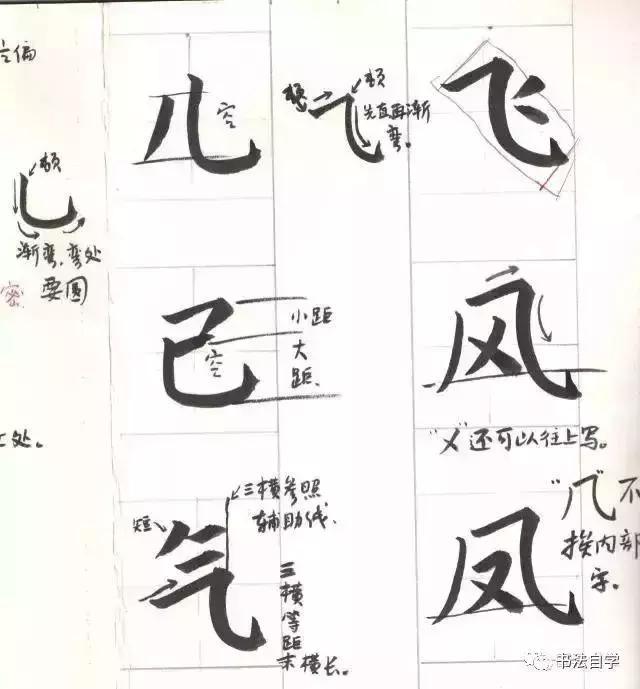 几
空
顿
渐弯,弯处
要圆
密
处。
己
空
小距
大
距
气
短
三横参照
辅助线
三
横
等
距
末横长。
顿
先直再渐
弯。
飞
风
"乂"还可以往上写。
凤
"几"不
挨内部
字。
书法自学